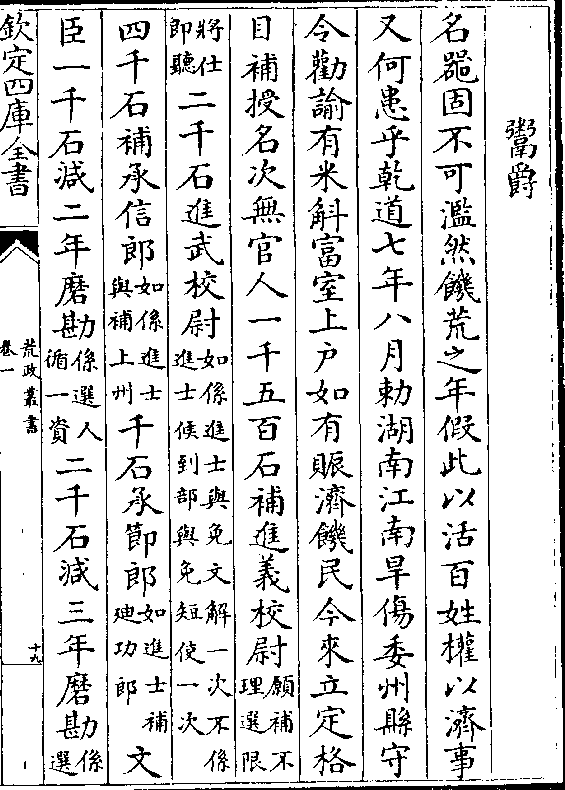 鬻爵
名噐固不可濫然饑荒之年假此以活百姓權以濟事
又何患乎乾道七年八月勅湖南江南旱傷委州縣守
令勸諭有米斛富室上户如有賑濟饑民今來立定格
目補授名次無官人一千五百石補進義校尉願補不理選限
將仕即聽二千石進武校尉如係進士與免文解一次不係進士候到部與免短使一次
四千石補承信郎如係進士與補上州千石承節郎如進士補廸功郎文
臣一千石減二年磨勘係選人循一資二千石減三年磨勘係選
欽定四庫全書
荒政叢書
卷一
十九